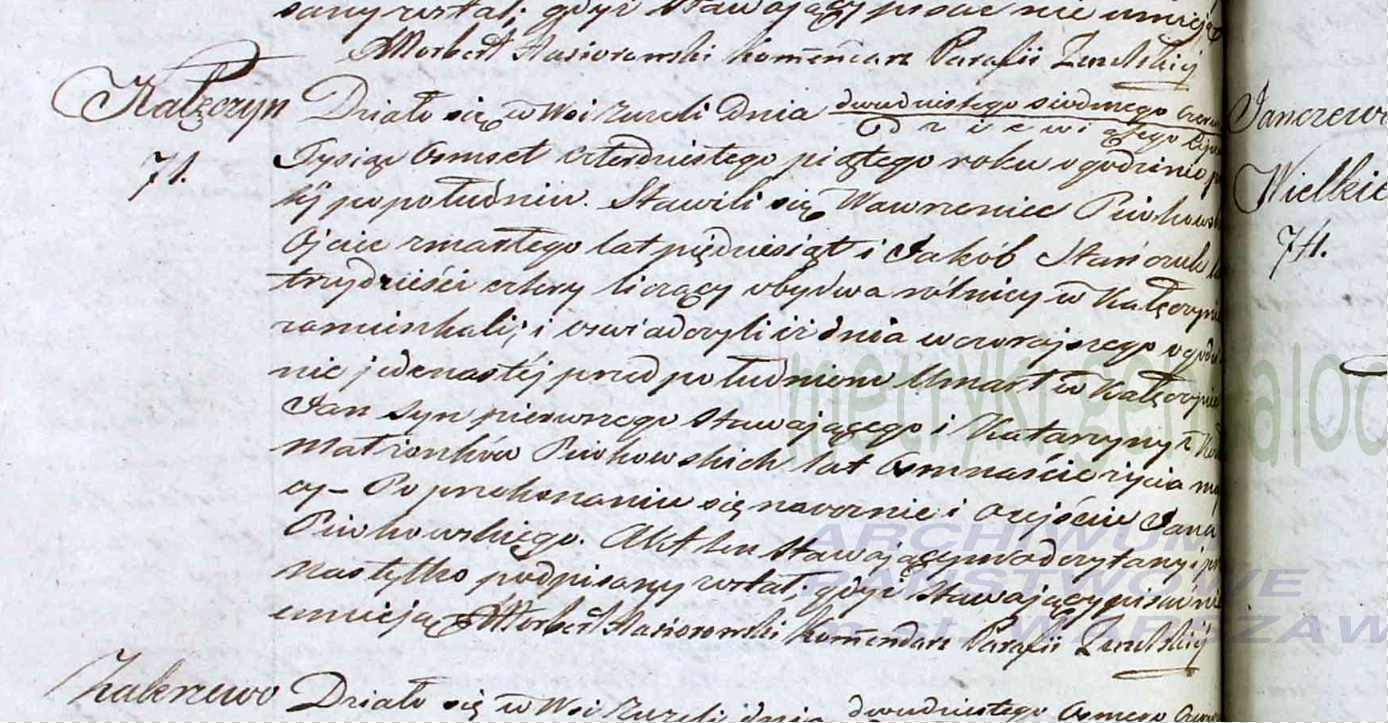 sany został; gdyż Stawający pisać nie umieją
X Norbert Nasiorowski Komendarz Parafii Zuzelskiej
Kałęczyn
71.
Działo się w Wsi Zuzeli dnia dwudziestego siodmego Czerw
dziewiątego Lipca
Tysiąc Osmset czterdziestego piątego roku o godzinie
tej po południu. Stawili się Wawrzeniec Piwkowski
Ojciec zmarłego lat pięćdziesiąt i Jakób Stańczuk
trzydzieści cztery liczący obydwa rólnicy w Kałęczynie
zamieszkali; i oświadczyli iż dnia wczorajszego o godzi
nie jedenastej przed południem Umarł w Kałęczynie
Jan Syn pierwszego Stawającego i Katarzyny z
Małżonków Piwkowskich lat Osmnaście życia
cy – Po przekonaniu się naocznie i zejście Jana
Piwkowskiego. Akt ten Stawającym odczytany i
Nas tylko podpisany został; gdyż Stawający pisać nie
umieją X Norbert Nasiorowski Komendarz Parafii Zuzelskiej
Zakrzewo
Działo się w Wsi Zuzeli dnia dwudziestego Osmego
Janczewo
Wielkie
74.
metryki.genealod
ARCHIWUM
PAŃSTWOWE
m. st. WARSZAW